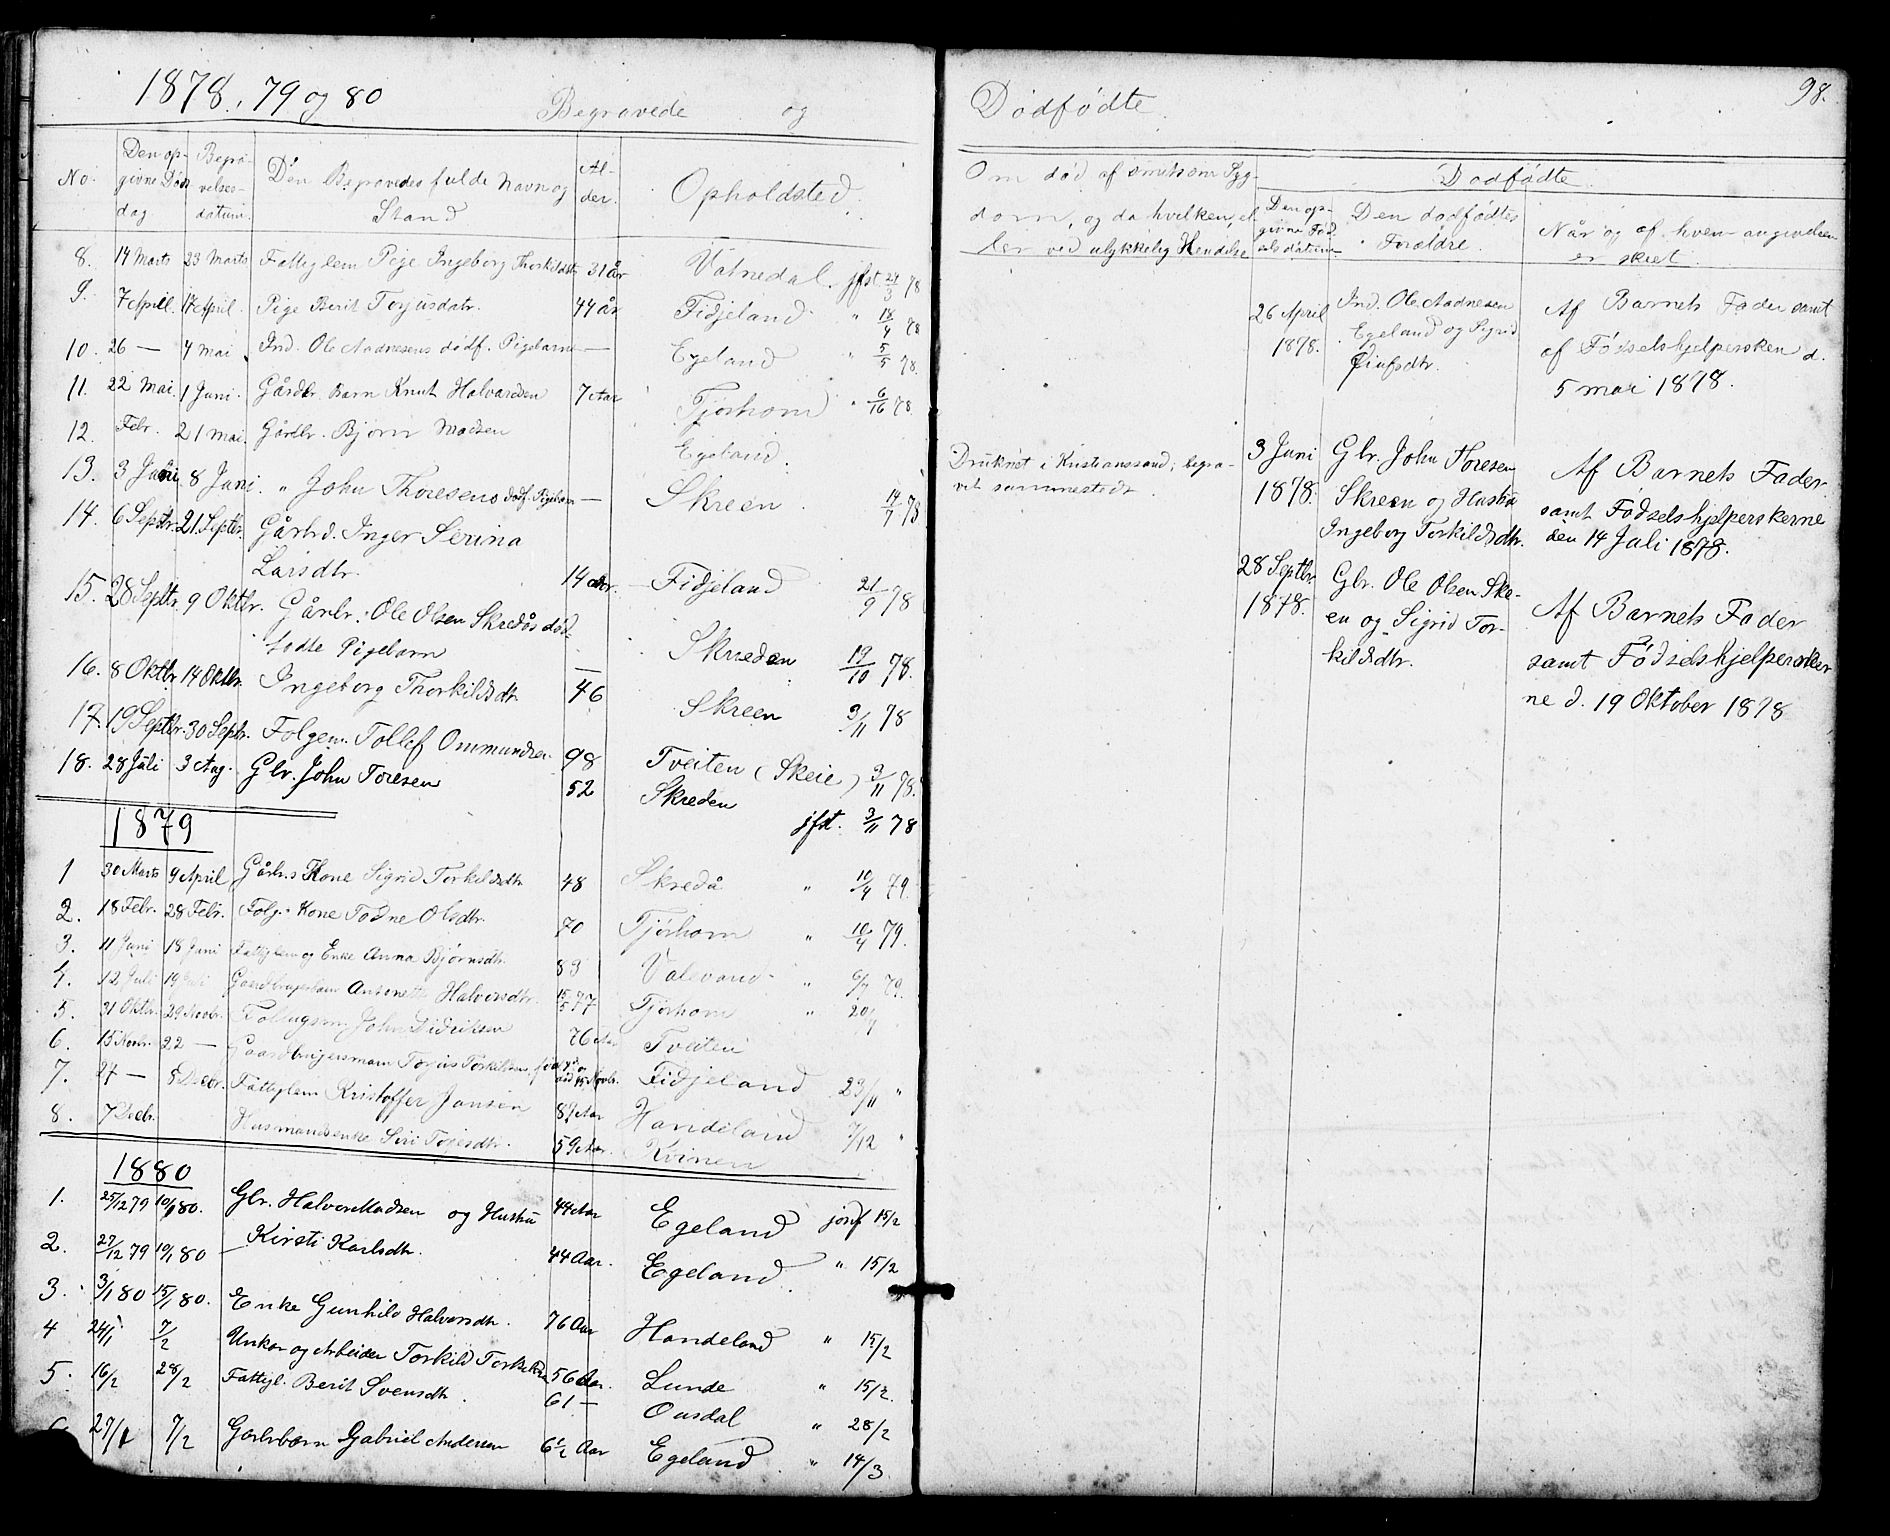 1878, 79 og 80
Begravede og
No. Den opgivne Døds dag Begravelses-datum. Den Begravedes fulde Navn og Stand Alder. Opholdsted.
8. 14 Marts 23 Marts Fattiglem Pige Ingeborg Thorkildsdtr 31 år Vatnedal. jfst. 24/3 78
9. 7 April 17 April. Pige Berit Torjusdatr. 44 år Fidjeland " 18/4 78
10. 26 — 4 mai Ind. Ole Aadnesens dødf. Pigebarn — Egeland " 5/5 78.
11. 22 Mai. 1 Juni. Gårdbr. Barn Knut Halvardsen 7 Aar Tjørhom " 6/16 78.
12. Febr. 21 mai. Gårdbr. Bjørn Madsen Egeland.
13. 3 Juni 8 Juni. " John Thoresens dødf. Pigebarn — Skreen 14/7 78
14. 6 Septbr. 21 Septbr. Gårbd. Inger Serina
Larsdtr. 14 Aar. Fidjeland 21/9 78
15. 28 Septbr. 9 Oktbr. Gårbr. Ole Olsen Skredås død-
fødte Pigebarn — Skreden 19/10 78.
16. 8 Oktbr. 14 Oktbr. Ingeborg Thorkildsdtr. 46 Skreen 3/11 78
17. 19 Septbr. 30 Septbr. Folgem. Tollef Ommundsen 98 Tveiten (Skeie) 3/11 78.
18. 28 Juli 3 Aug. Glr. John Toresen 52 Skreden
jfst. 3/11 78
1879
1 30 Marts 9 April Gårbrs Kone Sigrid Torkildsdtr 48 Skredå " 10/4 79.
2. 18 Febr. 28 Febr. Folg. Kone Todne Olsdtr. 70 Tjørhom " 10/4 79.
3. 11 Juni 18 Juni Fattiglem og Enke Anna Bjørnsdtr. 83 Valevand " 6/7 79.
4. 12 Juli 19 Juli Gaardbrugerbarn Antonette Halvorsdtr. 15/5 77 Tjørhom " 20/7
5. 31 Oktbr. 29 Novbr. John Didriksen 76 Aar Tveiten
6. 15 Novbr. 22 — Gaardbrugersmann Torjus Torkildsens Fidjeland 23/11 "
7. 27 — 5 Decbr. Fattiglem Kristoffer Jansen 89 Aar Handeland 7/12 "
8. 7 Decbr. Husmandsenke Siri Tojesdtr. 59 Aar. Kvinen
1880
1. 25/12 79 10/1 80. Glr. Halvor Madsen og Hustru 44 Aar Egeland jonf 15/2
2. 27/12 79 10/1 80 — Kirsti Karlsdtr. 44 Aar. Egeland. " 15/2
3. 3/1 80 15/1 80. Enke Gunhild Halvorsdtr. 76 Aar Handeland " 15/2
4 24/1 7/2 Unkar og Arbeider Torkild Torkildsen 56 Aar. Lunde " 15/2.
5. 16/2 28/2 Fattigl. Berit Svensdtr. 61 — Ousdal " 28/2
27/1 7/2 Gaarbrbarn Gabriel Andersen 6 1/2 Aar Egeland " 14/3
98.
Dødfødte.
Om død af smitsom Syg-
dom, og da hvilken, el-
ler ved ulykkelig Hendelse
Dødfødte
Den op-givne Fød-selsdatum. Den dødfødtes Forældre. Når og af hvem angivelsen er skeet.
26 April 1878. Ind. Ole Aadnesen
Egeland og Sigrid
Af Barnets Fader samt
af Fødselshjelpersken d.
5 mai 1878.
Druknet i Kristianssand; begra-
vet sammestedt.
3 Juni 1878. Glr. John Thoresen
Skreen og Hustru
Ingeborg Torkildsdtr.
Af Barnets Fader
samt Fødselshjelperskerne
den 14 Juli 1878.
28 Septbr. 1878. Glr. Ole Olsen Skre-
en og Sigrid Tor-
kildsdtr.
Af Barnets Fader
samt Fødselshjelpersker
ne d. 19 Oktober 1878